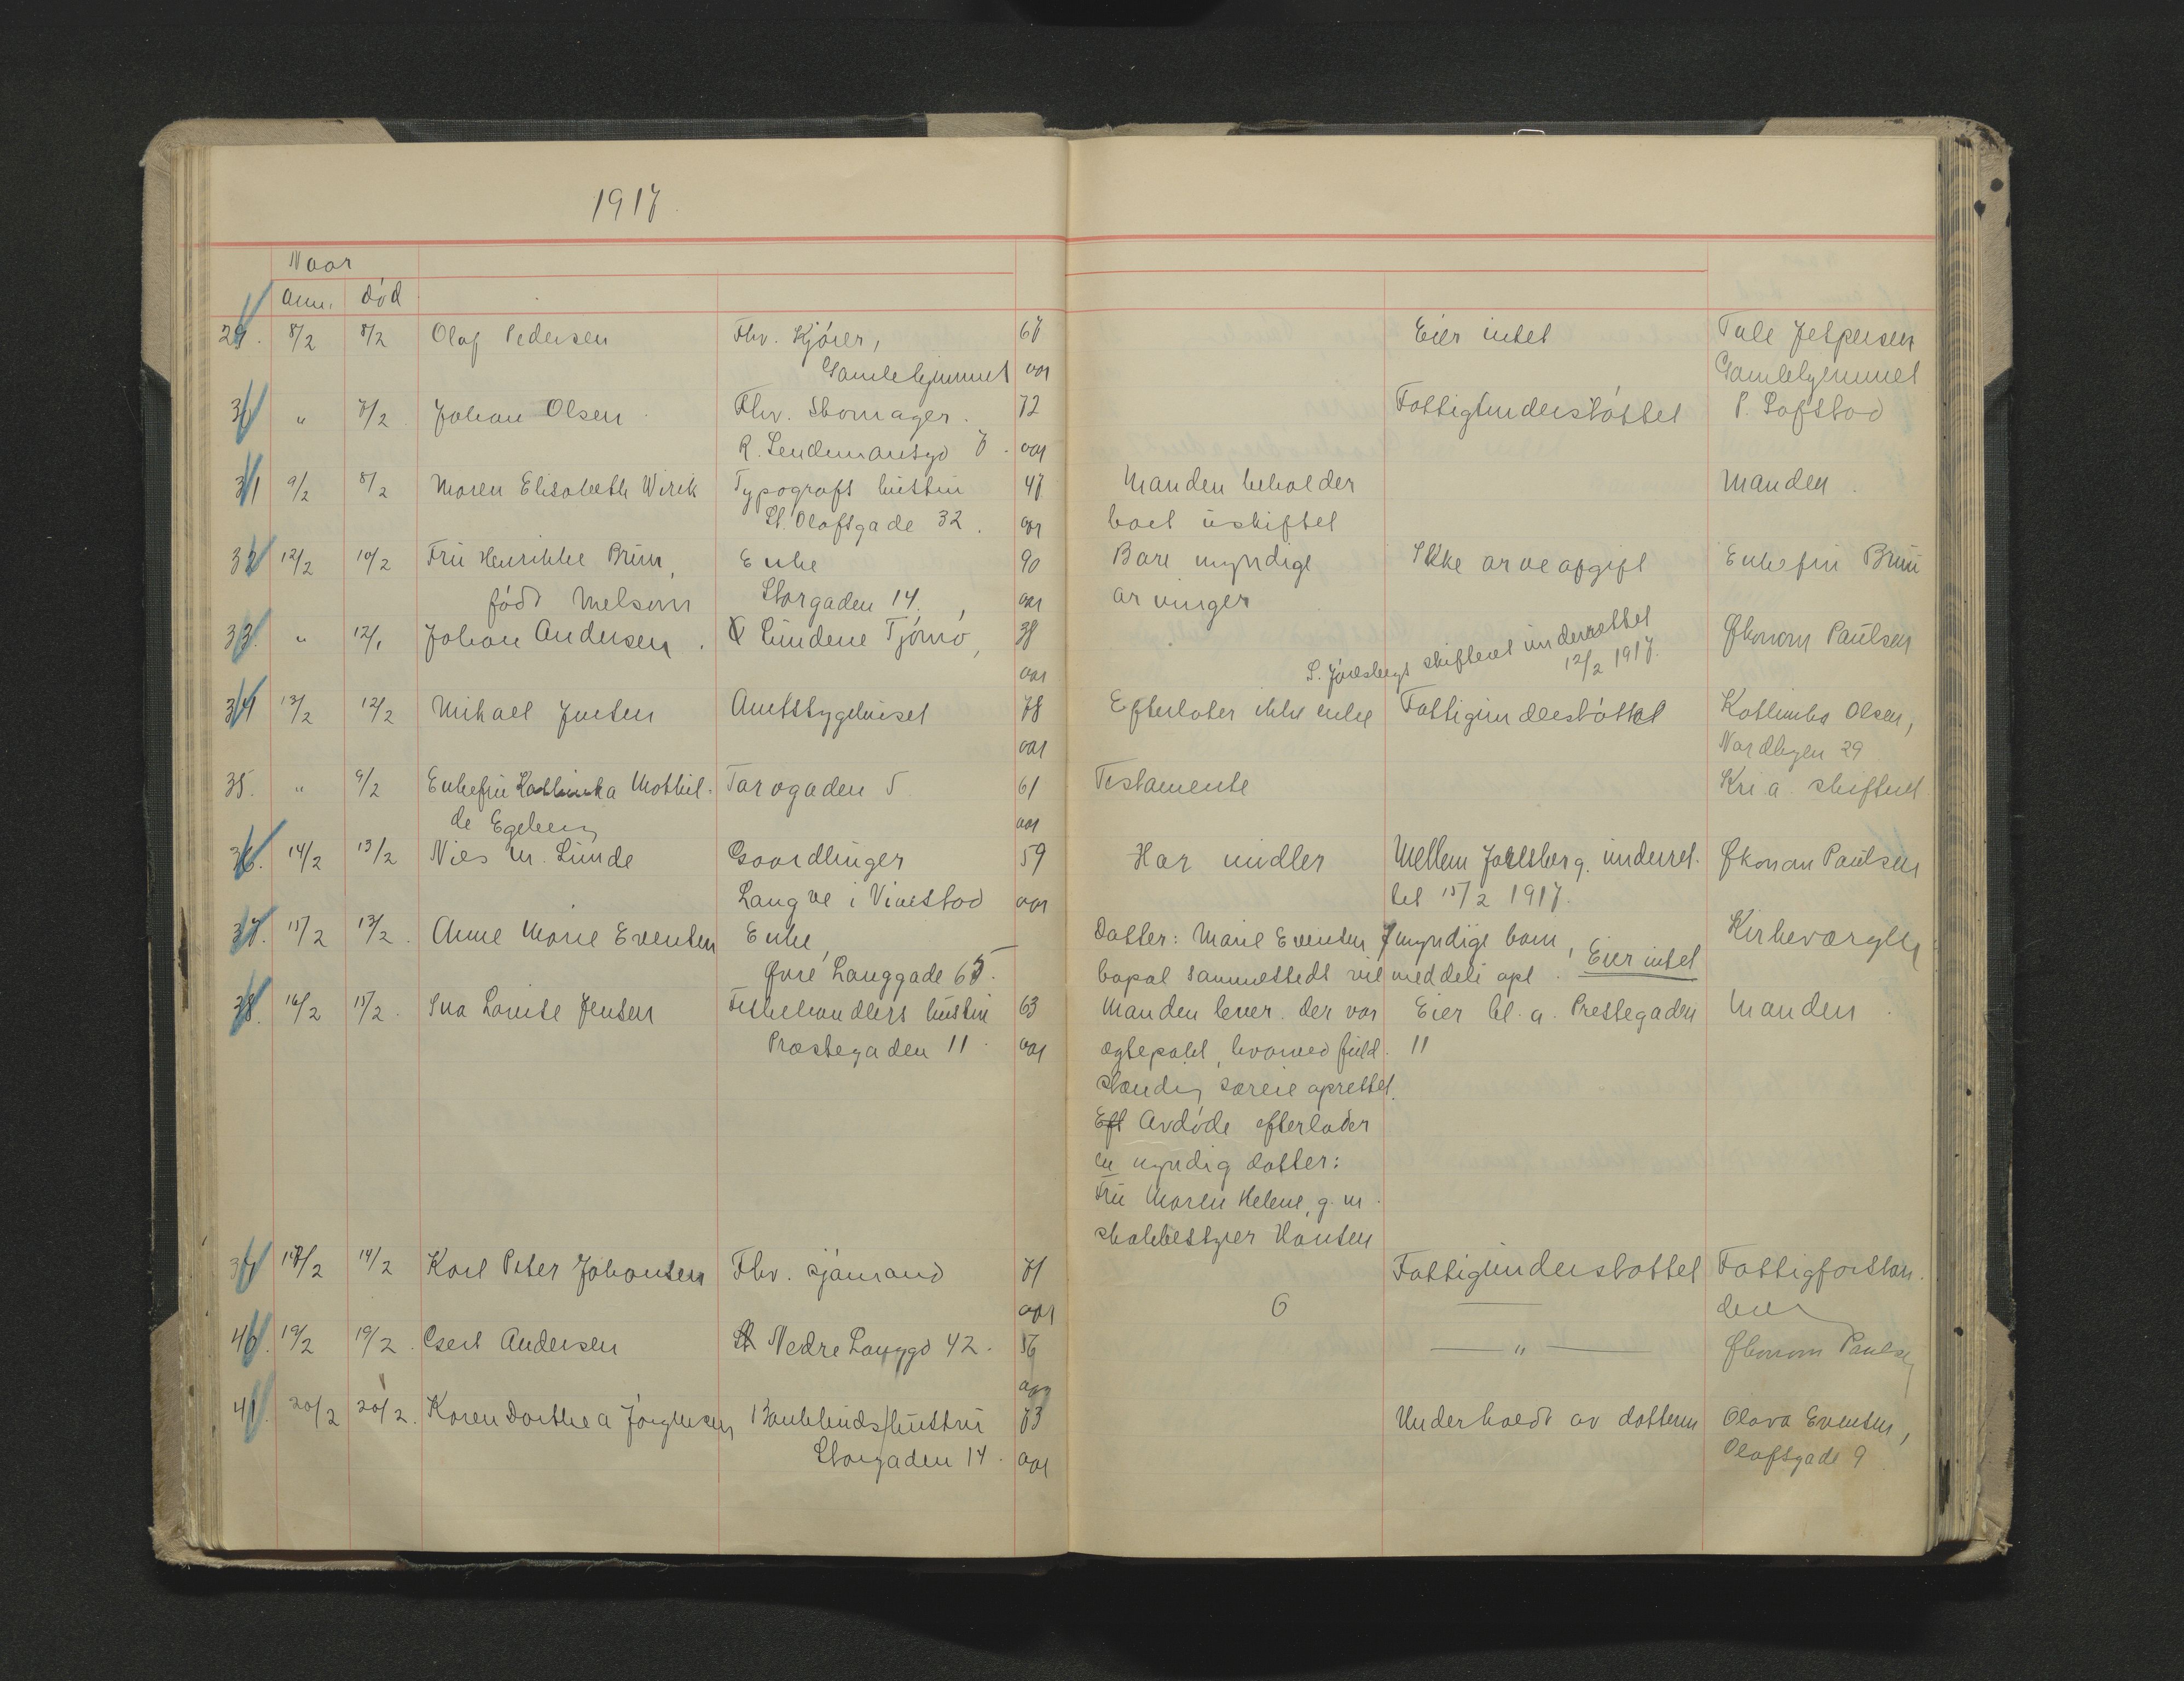 1917.
Naar
Anm. død
29. 8/2 8/2 Olaf Pedersen Fhv. Kjører, 67 Eier intet Tale Jespersen
Gamlehjemmet aar Gamlehjemmet
30 " 7/2 Johan Olsen Fhv. Skomager. 72 Fattigunderstøttet P. Løfstad
R. Lendemansgd 7. aar
31 9/2 8/2 Maren Elisabeth Wirik Typografs hustru 47 Manden beholder Manden.
St. Olafsgade 32. aar boet uskiftet
32 12/2 10/2 Fru Henrikke Bruu, Enke 90 Bare myndige Ikke arveafgift Enkefru Bruu
født Melsom Storgaden 14, aar arvinger
33. " 12/1 Johan Andersen. Lindene Tjømø, 38 S. Jarlsbergs skifteret underrettet Økonom Paulsen
aar 12/2 1917.
34 13/2 12/2 Mikael Jensen Amtssygehuset 78 Efterlater ikke enke Fattigunderstøttet Kathinka Olsen,
aar Nordbyen 29
35. " 9/2 Enkefru Kathinka Mathil- Farvgaden 5 61 Testamente Kr.a. skifteret
de Egeberg aar
36. 14/2 13/2 Nies M. Linde Gaardbruger 59 Har midler Mellem Jarlsberg. underret- Økonom Paulsen
Langve i Vivestad aar tet 15/2 1917.
37. 15/2 13/2. Anne Marie Evensen Enke, Datter: Marie Evensen 7 myndige barn, Eier intet Kirkeværgen
Øvre Langgade 65. bopæl sammesteds vil meddele opl.
38. 16/2 15/2. Ina Louise Jensen Fiskehandlers hustru 63 Manden lever. Der var Eier bl. a. Prestegaden Manden.
Præstegaden 11. aar ægtepakt, hvorved fuld- 11
stændig særeie oprettet.
Eft Avdøde efterlader
en myndig datter:
Fru Maren Helene, g. m.
skolebestyrer Hansen
39 17/2 14/2 Karl Peter Johansen Fhv. sjømand 71 Fattigunderstøttet Fattigforstan-
aar 6 der
40. 19/2 19/2. Gert Andersen St Nedre Langgd 42. 56 — " — Økonom Paulsen
aar
41. 20/2 20/2. Karen Dorthea Jørgensen Bankbuds hustru 73 Underholdt av datteren Olava Evensen,
Storgaden 14. aar Olafsgade 9